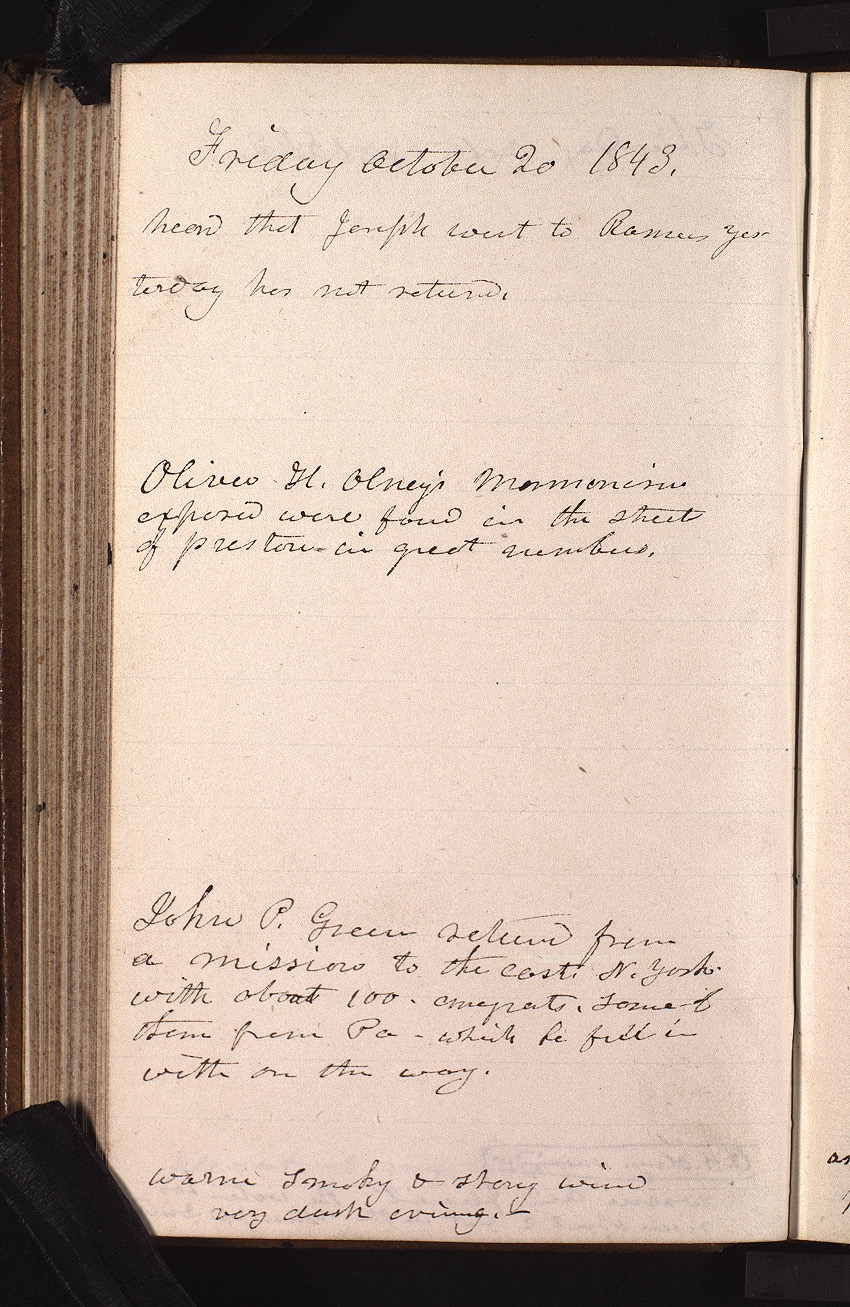 Friday October 20 1843.
heard that Joseph went to Ramus yes-
terday has not returnd.
Oliver H. Olney's Mormonism
exposed were found in the street
of preston in great numbers.
John P. Green returnd from
a mission to the east. N. York.
with about 100. emegrats. some of
them from Pa - which he fell in
with on the way.
warm smoky & strong wind
very dusk evening.-
as